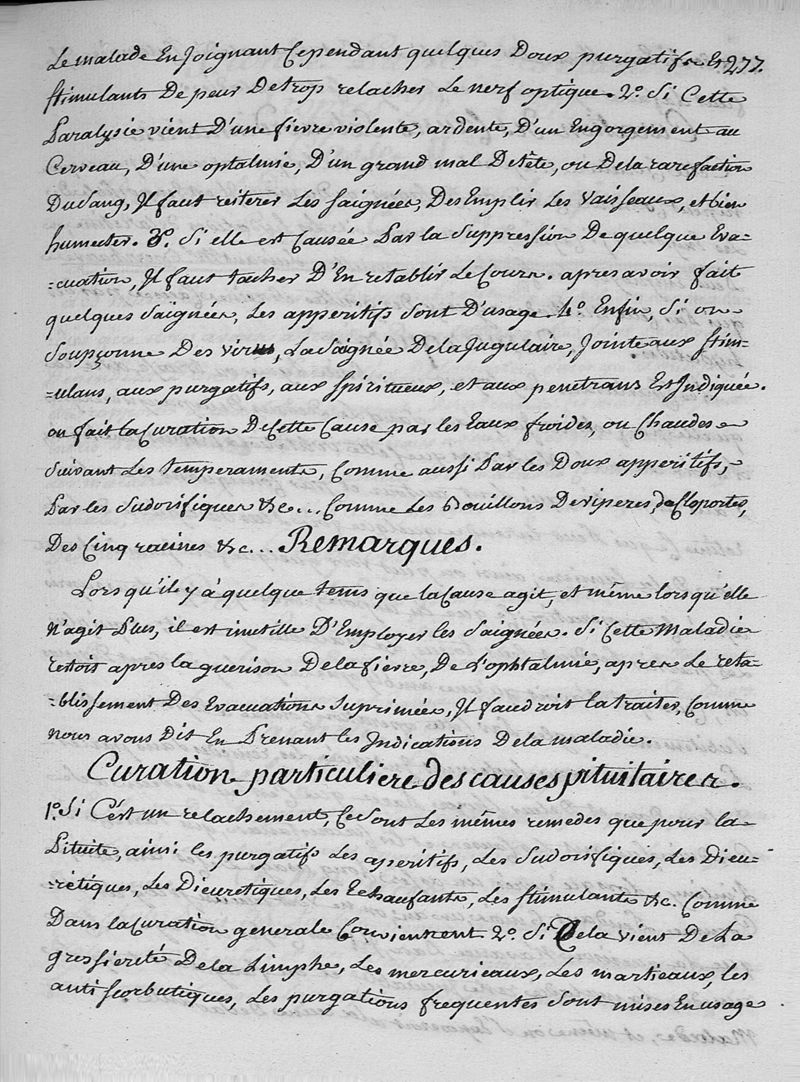 Le malade En Joignant Cependant quelques Doux purgatifs Et 277.
stimulants De peur De trop relacher Le nerf optique. 2.° Si Cette
Paralysie vient D'une fievre violente, ardente, D'un Engorgement au
Cerveau, D'une optalmie, D'un grand mal De tète, ou De la rarefaction
Du Sang, Il faut reiterer Les saignées, Des Emplir Les Vaisseaux, et bien
humecter. 3.° Si elle est Causée Par la Suppression De quelque Eva-
=cuation, Il faut tacher D'En retablir Le Cours. apres avoir fait
quelques Saignées, Les apperitifs sont D'usage. 4.° Enfin, Si on
Soupçonne Des virus, La Saignée De la Jugulaire, Jointe aux stim-
=ulans, aux purgatifs, aux spiritueux, et aux penetrans Est Indiquée.
on fait la Curation De Cette Cause par les Eaux froides, ou Chaudes
Suivant Les temperaments, Comme aussi Par les Doux apperitifs,
Par les Sudorifiques &c... Comme Les Bouillons De viperes, de Cloportes,
Des Cinq racines &c... Remarques.
Lors qu'il y à quelque tems que la Cause agit, et même lors qu'elle
n'agit Plus, il est inutille D'Employer les Saignées. Si Cette Maladie
restoit apres la guerison De la fievre, De L'ophtalmie, apres Le reta-
=blissement Des Evacuations Suprimées, Il faudroit la traiter, Comme
nous avons Dit En Prenant les Indications De la maladie.
Curation particuliere des causes pituitaires.
1.° Si C'est un relachement, Ce sont Les mêmes remedes que pour la
Pituite, ainsi les purgatifs Les aperitifs, Les Sudorifiques, Les Dieu-
=rétiques, Les Dieuretiques, Les Echaufants, Les stimulants &c. Comme
Dans la Curation generale Conviennent. 2.° Si Cela vient De La
grossiereté De la Limphe, Les mercuriaux, Les martiaux, les
anti scorbutiques, Les purgations frequentes Sont mises En usage